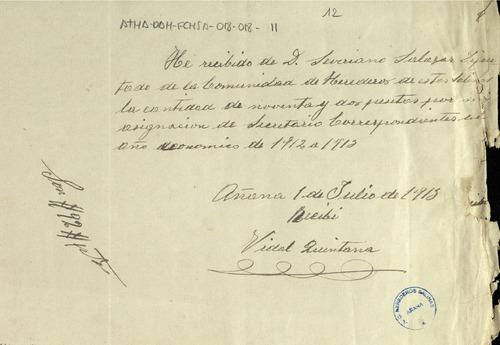 ATHA-DAH-FCHSA-018-018-11
12
He recibido de D. Severiano Salazar Dipu
tado de la Comunidad de Herederos de estas Salinas
la cantidad de noventa y dos pesetas por mi
asignacion de Secretario Correspondiente
año economico de 1912 a 1913
Añana 1 de Julio de 1913
Recibi
Vidal Quintana
Son #92#
HEREDEROS SALINAS
AÑANA